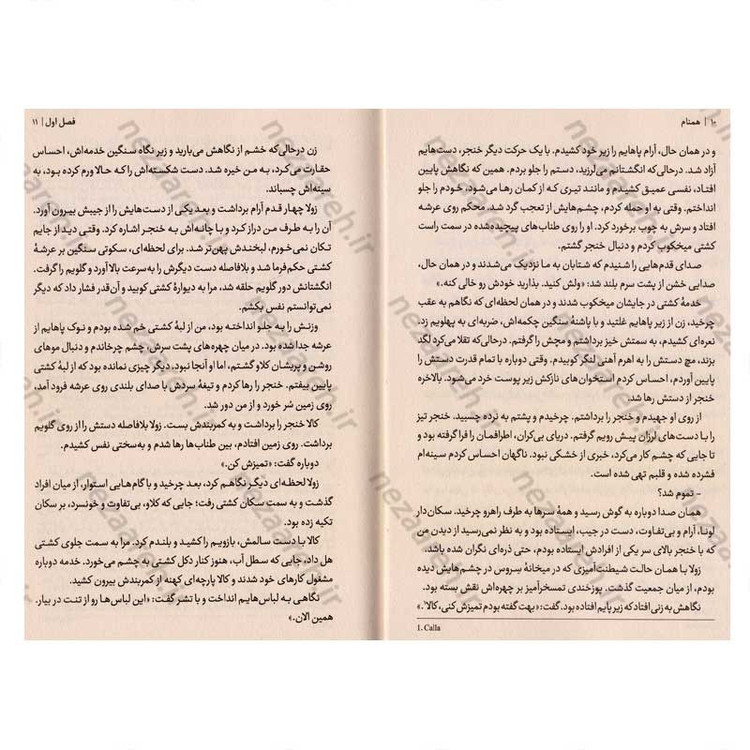 ۱۰ | همنام
و در همان حال، آرام پاهایم را زیر خود کشیدم. با یک حرکت دیگر خنجر، دست‌هایم
آزاد شد. درحالی‌که انگشتانم می‌لرزید، دستم را جلو بردم. همین که نگاهش پایین
افتاد، نفسی عمیق کشیدم و مانند تیری که از کمان رها می‌شود، خودم را جلو
انداختم. وقتی به او حمله کردم، چشم‌هایش از تعجب گرد شد. محکم روی عرشه
افتاد و سرش به چوب برخورد کرد. او را روی طناب‌های پیچیده‌شده در سمت راست
کشتی میخکوب کردم و دنبال خنجر گشتم.
صدای قدم‌هایی را شنیدم که شتابان به ما نزدیک می‌شدند و در همان حال،
صدایی خشن از پشت سرم بلند شد: «ولش کنید. بذارید خودش رو خالی کنه.»
خدمهٔ کشتی در جایشان میخکوب شدند و در همان لحظه‌ای که نگاهم به عقب
چرخید، زن از زیر پاهایم غلتید و با پاشنهٔ سنگین چکمه‌اش، ضربه‌ای به پهلویم زد.
نعره‌ای کشیدم، به سمتش خیز برداشتم و مچش را گرفتم. درحالی‌که تقلا می‌کرد لگد
بزند، مچ دستش را به اهرم آهنی لنگر کوبیدم. وقتی دوباره با تمام قدرت دستش را
پایین آوردم، احساس کردم استخوان‌های نازکش زیر پوست خرد می‌شود. بالاخره
خنجر از دستش رها شد.
از روی او جهیدم و خنجر را برداشتم. چرخیدم و پشتم به نرده چسبید. خنجر تیز
را با دست‌های لرزان پیش رویم گرفتم. دریای بی‌کران، اطرافمان را فرا گرفته بود و
تا جایی که چشم کار می‌کرد، خبری از خشکی نبود. ناگهان احساس کردم سینه‌ام
فشرده شده و قلبم تهی شده است.
- تموم شد؟
همان صدا دوباره به گوش رسید و همهٔ سرها به طرف راهرو چرخید. سکان‌دار
لونا، آرام و بی‌تفاوت، دست در جیب، ایستاده بود و به نظر نمی‌رسید از دیدن من
که با خنجر بالای سر یکی از افرادش ایستاده بودم، حتی ذره‌ای نگران شده باشد.
زولا با همان حالت شیطنت‌آمیزی که در میخانهٔ سِروس در چشم‌هایش دیده
بودم، از میان جمعیت گذشت. پوزخندی تمسخرآمیز بر چهره‌اش نقش بسته بود.
نگاهش به زنی افتاد که زیر پایم افتاده بود. گفت: «بهت گفته بودم تمیزش کنی، کالا¹.»
1. Calla
فصل اول | ۱۱
زن درحالی‌که خشم از نگاهش می‌بارید و زیر نگاه سنگین خدمه‌اش، احساس
حقارت می‌کرد، به من خیره شد. دست شکسته‌اش را که حالا ورم کرده بود، به
سینه‌اش چسباند.
زولا چهار قدم آرام برداشت و بعد یکی از دست‌هایش را از جیبش بیرون آورد.
آن را به طرف من دراز کرد و با چانه‌اش به خنجر اشاره کرد. وقتی دید از جایم
تکان نمی‌خورم، لبخندش پهن‌تر شد. برای لحظه‌ای، سکوتی سنگین بر عرشهٔ
کشتی حکم‌فرما شد و بلافاصله دست دیگرش را به‌سرعت بالا آورد و گلویم را گرفت.
انگشتانش دور گلویم حلقه شد، مرا به دیوارهٔ کشتی کوبید و آن‌قدر فشار داد که دیگر
نمی‌توانستم نفس بکشم.
وزنش را به جلو انداخته بود، من از لبهٔ کشتی خم شده بودم و نوک پاهایم از
عرشه جدا شده بود. در میان چهره‌های پشت سرش، چشم چرخاندم و دنبال موهای
روشن و پریشان کلاو گشتم، اما او آنجا نبود. دیگر چیزی نمانده بود که از لبهٔ کشتی
پایین بیفتم. خنجر را رها کردم و تیغهٔ سردش با صدای بلندی روی عرشه فرود آمد،
روی زمین سُر خورد و از من دور شد.
کالا خنجر را برداشت و به کمربندش بست. زولا بلافاصله دستش را از روی گلویم
برداشت. روی زمین افتادم، بین طناب‌ها رها شدم و به‌سختی نفس کشیدم.
دوباره گفت: «تمیزش کن.»
زولا لحظه‌ای دیگر نگاهم کرد، بعد چرخید و با گام‌هایی استوار، از میان افراد
گذشت و به سمت سکان کشتی رفت؛ جایی که کلاو، بی‌تفاوت و خونسرد، بر سکان
تکیه زده بود.
کالا با دست سالمش، بازویم را کشید و بلندم کرد. مرا به سمت جلوی کشتی
هل داد، جایی که سطل آب، هنوز کنار دکل کشتی به چشم می‌خورد. خدمه دوباره
مشغول کارهای خود شدند و کالا پارچه‌ای کهنه از کمربندش بیرون کشید.
نگاهی به لباس‌هایم انداخت و با تشر گفت: «این لباس‌ها رو از تنت در بیار.
همین الان.»
nezareh.ir